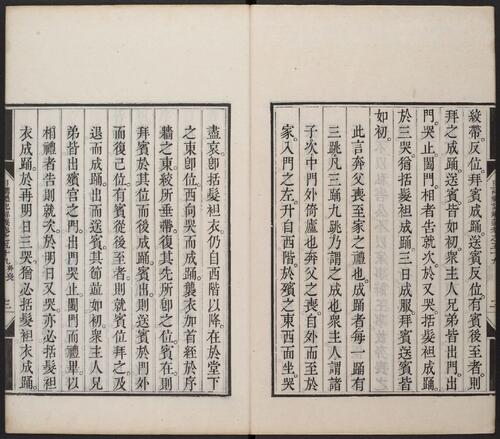 絞帶反位拜賓成踊送賓反位有賓後至者則
拜之成踊送賓皆如初衆主人兄弟皆出門出
門哭止闔門相者告就次於又哭括髮袒成踊
於三哭猶括髮袒成踊三日成服拜賓送賓皆
如初
此言奔父喪至家之禮也成踊者每一踊有
三跳凡三踊九跳乃謂之成也衆主人謂諸
子次中門外倚廬也奔父之喪自外而至於
家入門之左升自西階於殯之東西面坐哭
盡哀卽括髮袒衣仍自西階以降在於堂下
之東卽位西向哭而成踊襲衣加首絰於序
牆之東絞所垂帶復其先所卽之位賓在則
拜賓於其位而後成踊賓出則送賓於門外
而復己位有賓從後至者則就賓位拜之及
退而成踊出而送賓其節並如初衆主人兄
弟皆出殯宮之門出門哭止闔門而禮畢以
相禮者告則就次於明日又哭亦必括髮袒
衣成踊於再明日三哭猶必括髮袒衣成踊